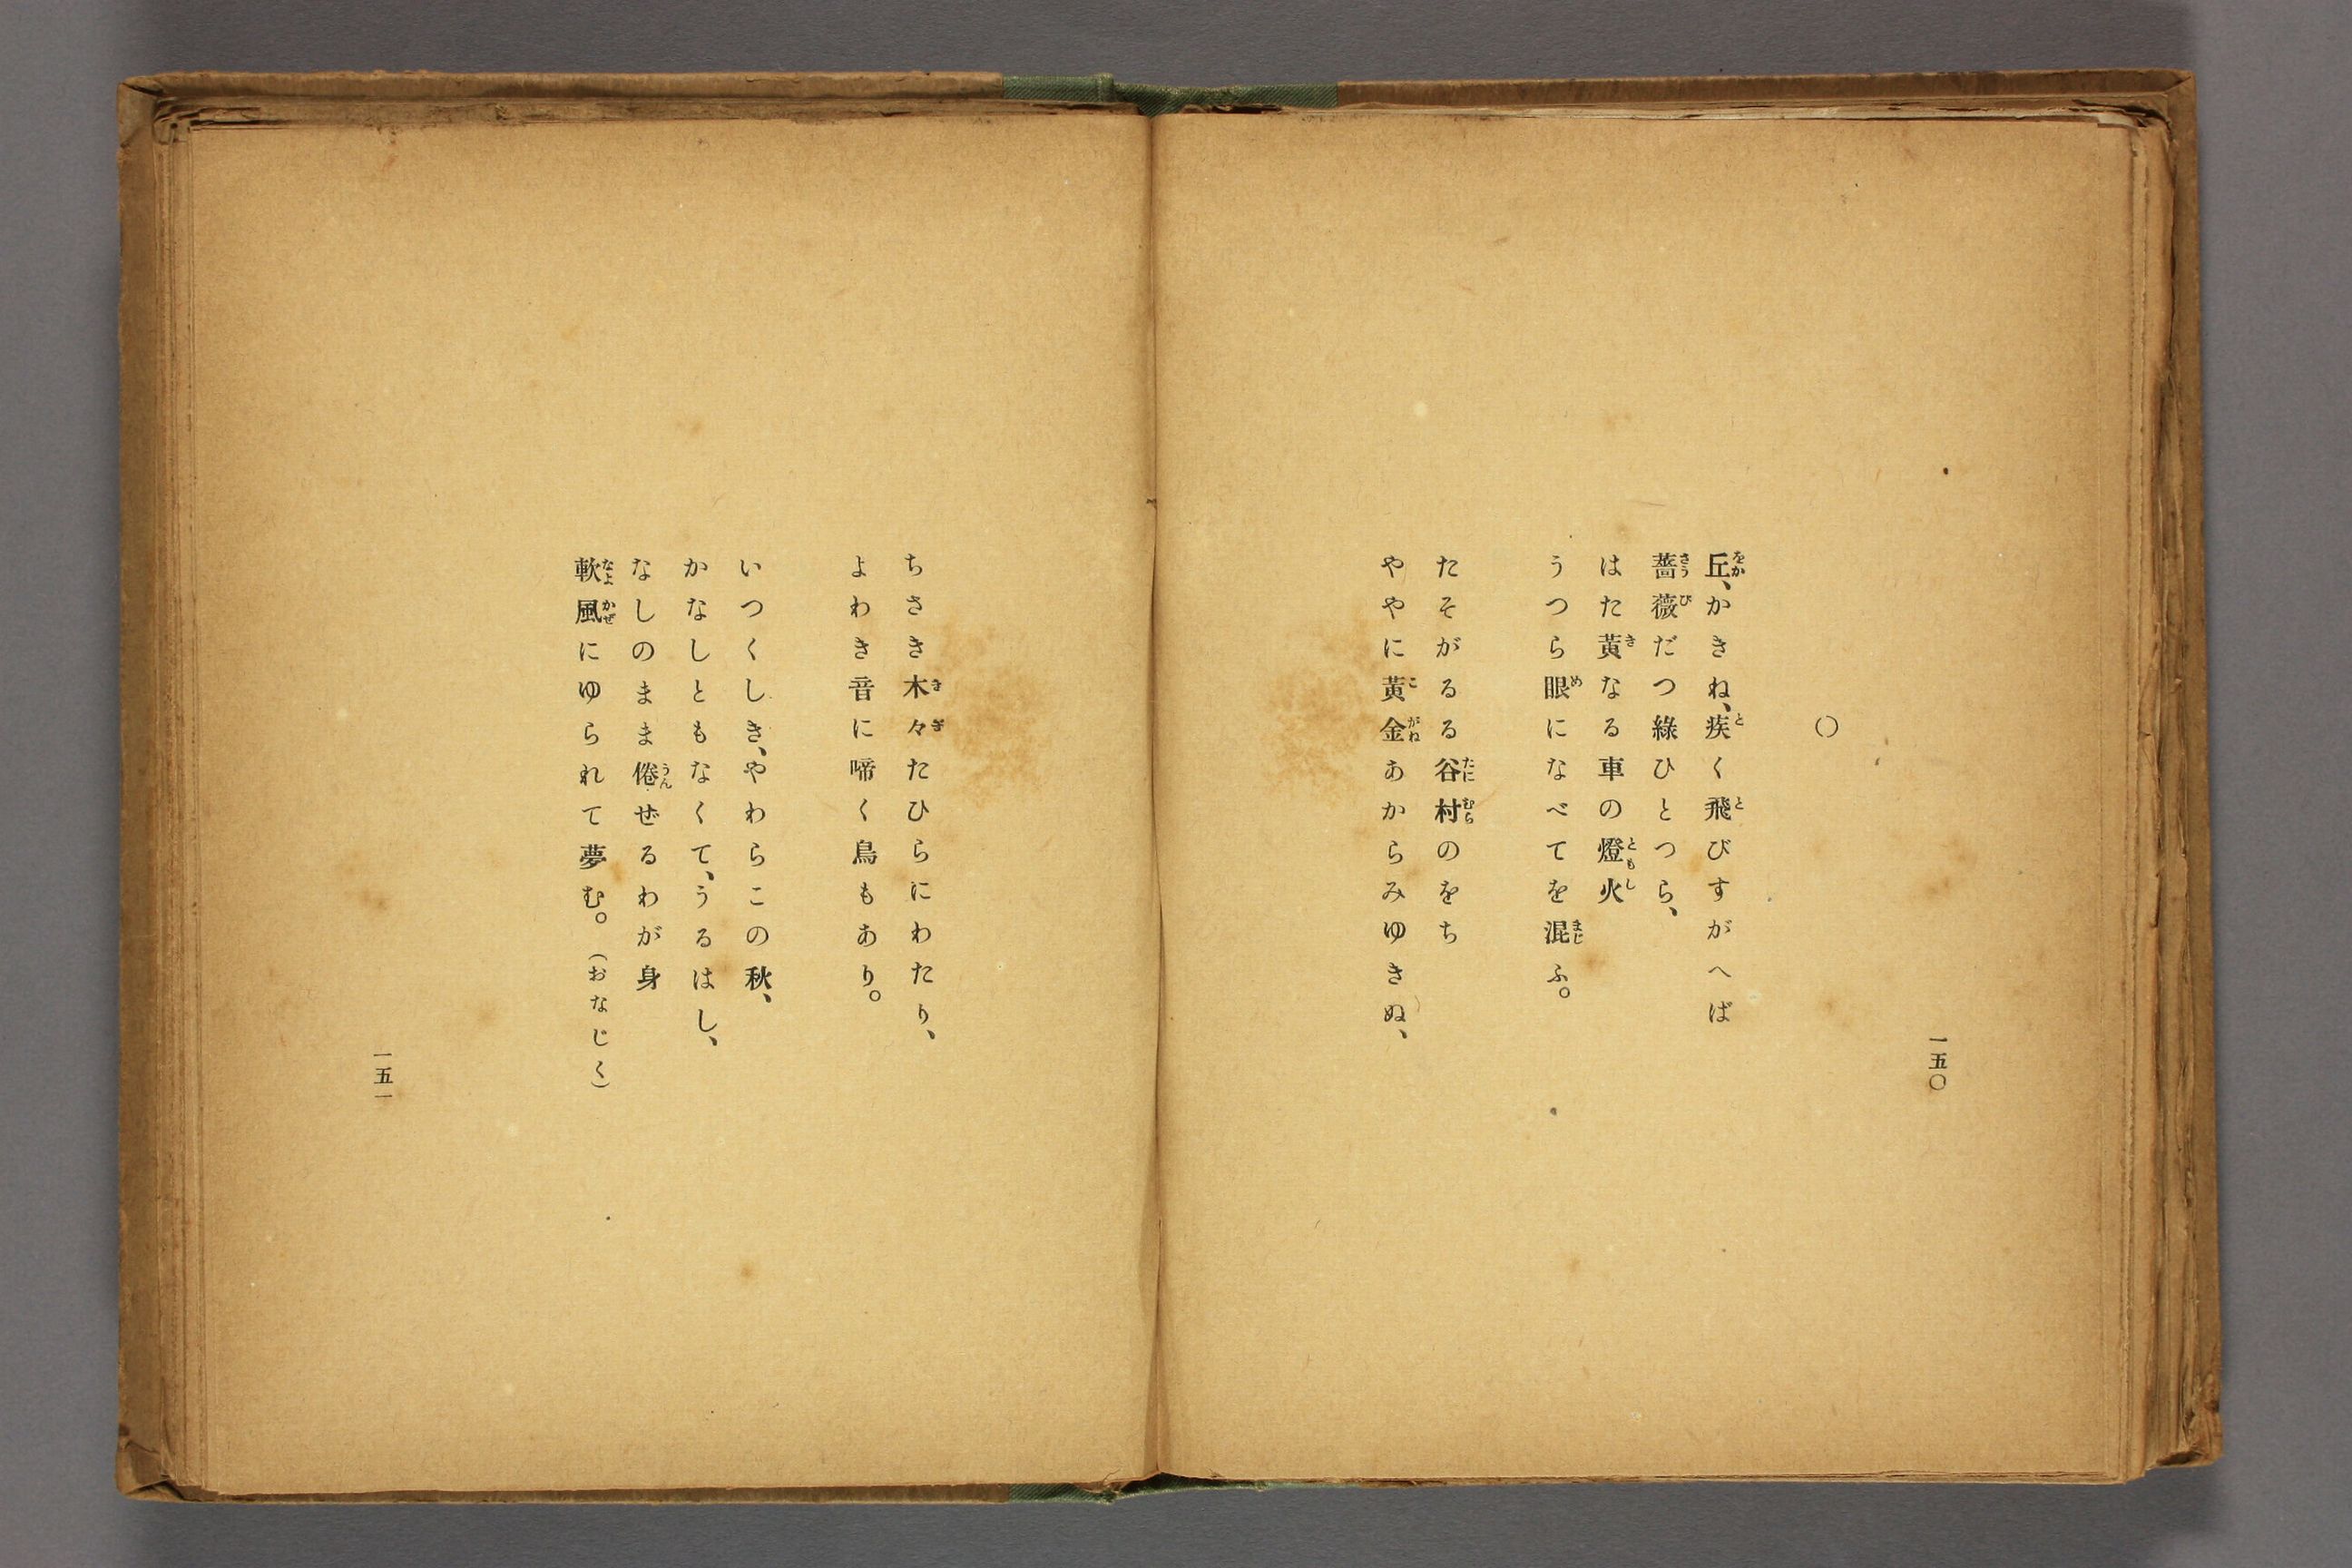 一五〇
〇
丘、かきね、疾く飛びすがへば
薔薇だつ綠ひとつら、
はた黄なる車の燈火
うつら眼になべてを混ふ。
たそがるる谷村のをち
ややに黄金あからみゆきぬ、
ちさき木々たひらにわたり、
よわき音に啼く鳥もあり。
いつくしき、やわらこの秋、
かなしともなくて、うるはし、
なしのまま倦ぜるわが身
軟風にゆられて夢む。(おなじく)
一五一